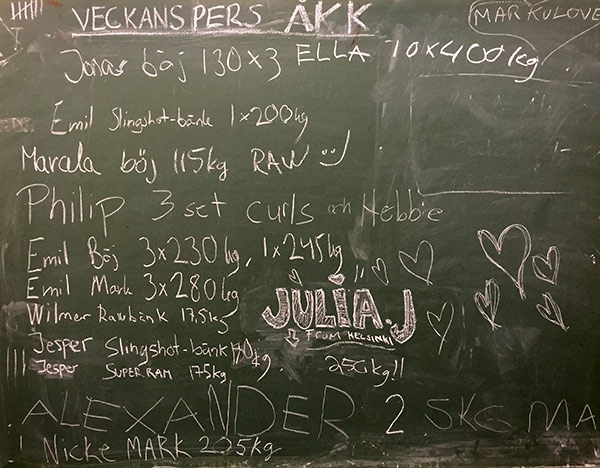 VECKANS PERS ÅKK
MARKULOVE
Jonas böj 130x3
ELLA 10x400kg
Emil Slingshot-bänk 1x200kg
Marcela böj 115kg RAW :)
Philip 3 set curls och Hebbie
Emil Böj 3x230kg, 1x245kg
Emil Mark 3x280kg
JULIA.J
Wilmer Rawbänk
FROM HELSINKI
Jesper Slingshot-bänk kg
250kg!!
Jesper SUPER RAM 175kg
ALEXANDER 2 5KG MA
Nicke MARK 205kg